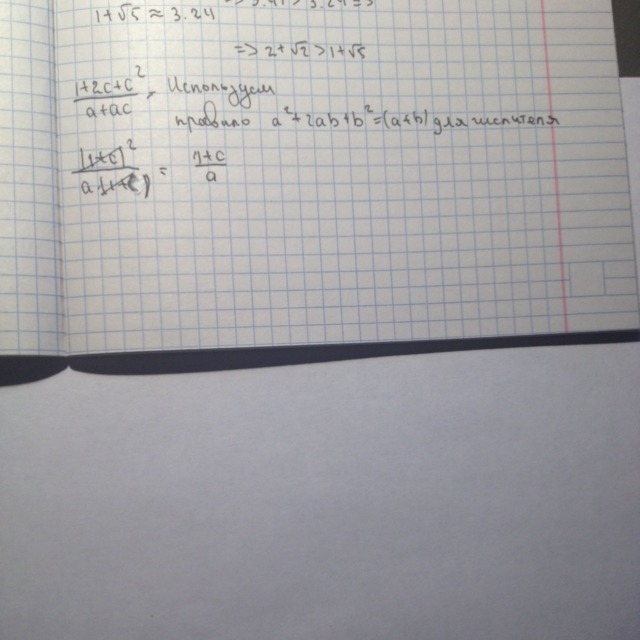 1+√5 ≈ 3.24 => 3.41 > 3.24 =>
=> 2+√2 > 1+√5
(1+2c+c²)/(a+ac), Используем
правило a²+2ab+b²=(a+b) для числителя
(1+c)²/(a(1+c)) = (1+c)/a